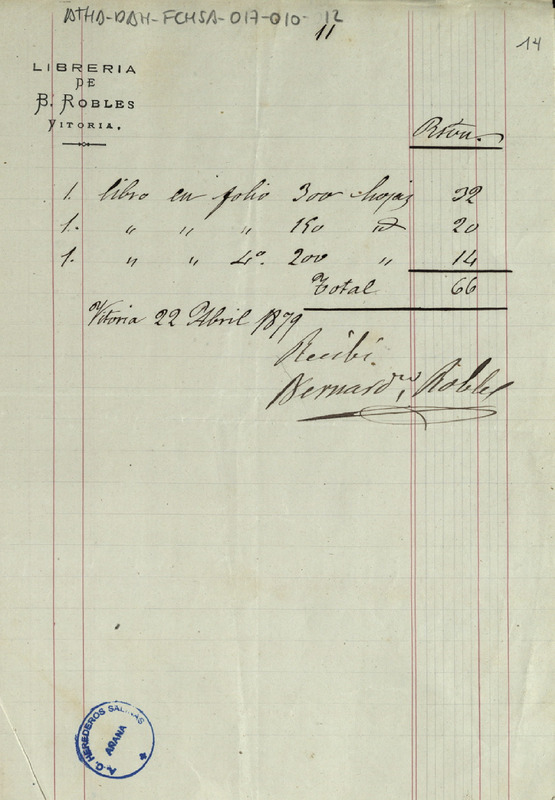 ATHA-DAH-FCHSA-017-010-12
11
14
LIBRERIA
DE
B. ROBLES
VITORIA.
Rson.
1. libro en folio 300 hojas 32
1. " " " 150 id 20
1. " " 4º. 200 " 14
Total 66
Vitoria 22 Abril 1879
Recibi.
Bernardo Robles
A.Q. HEREDEROS SALINAS
ARANA